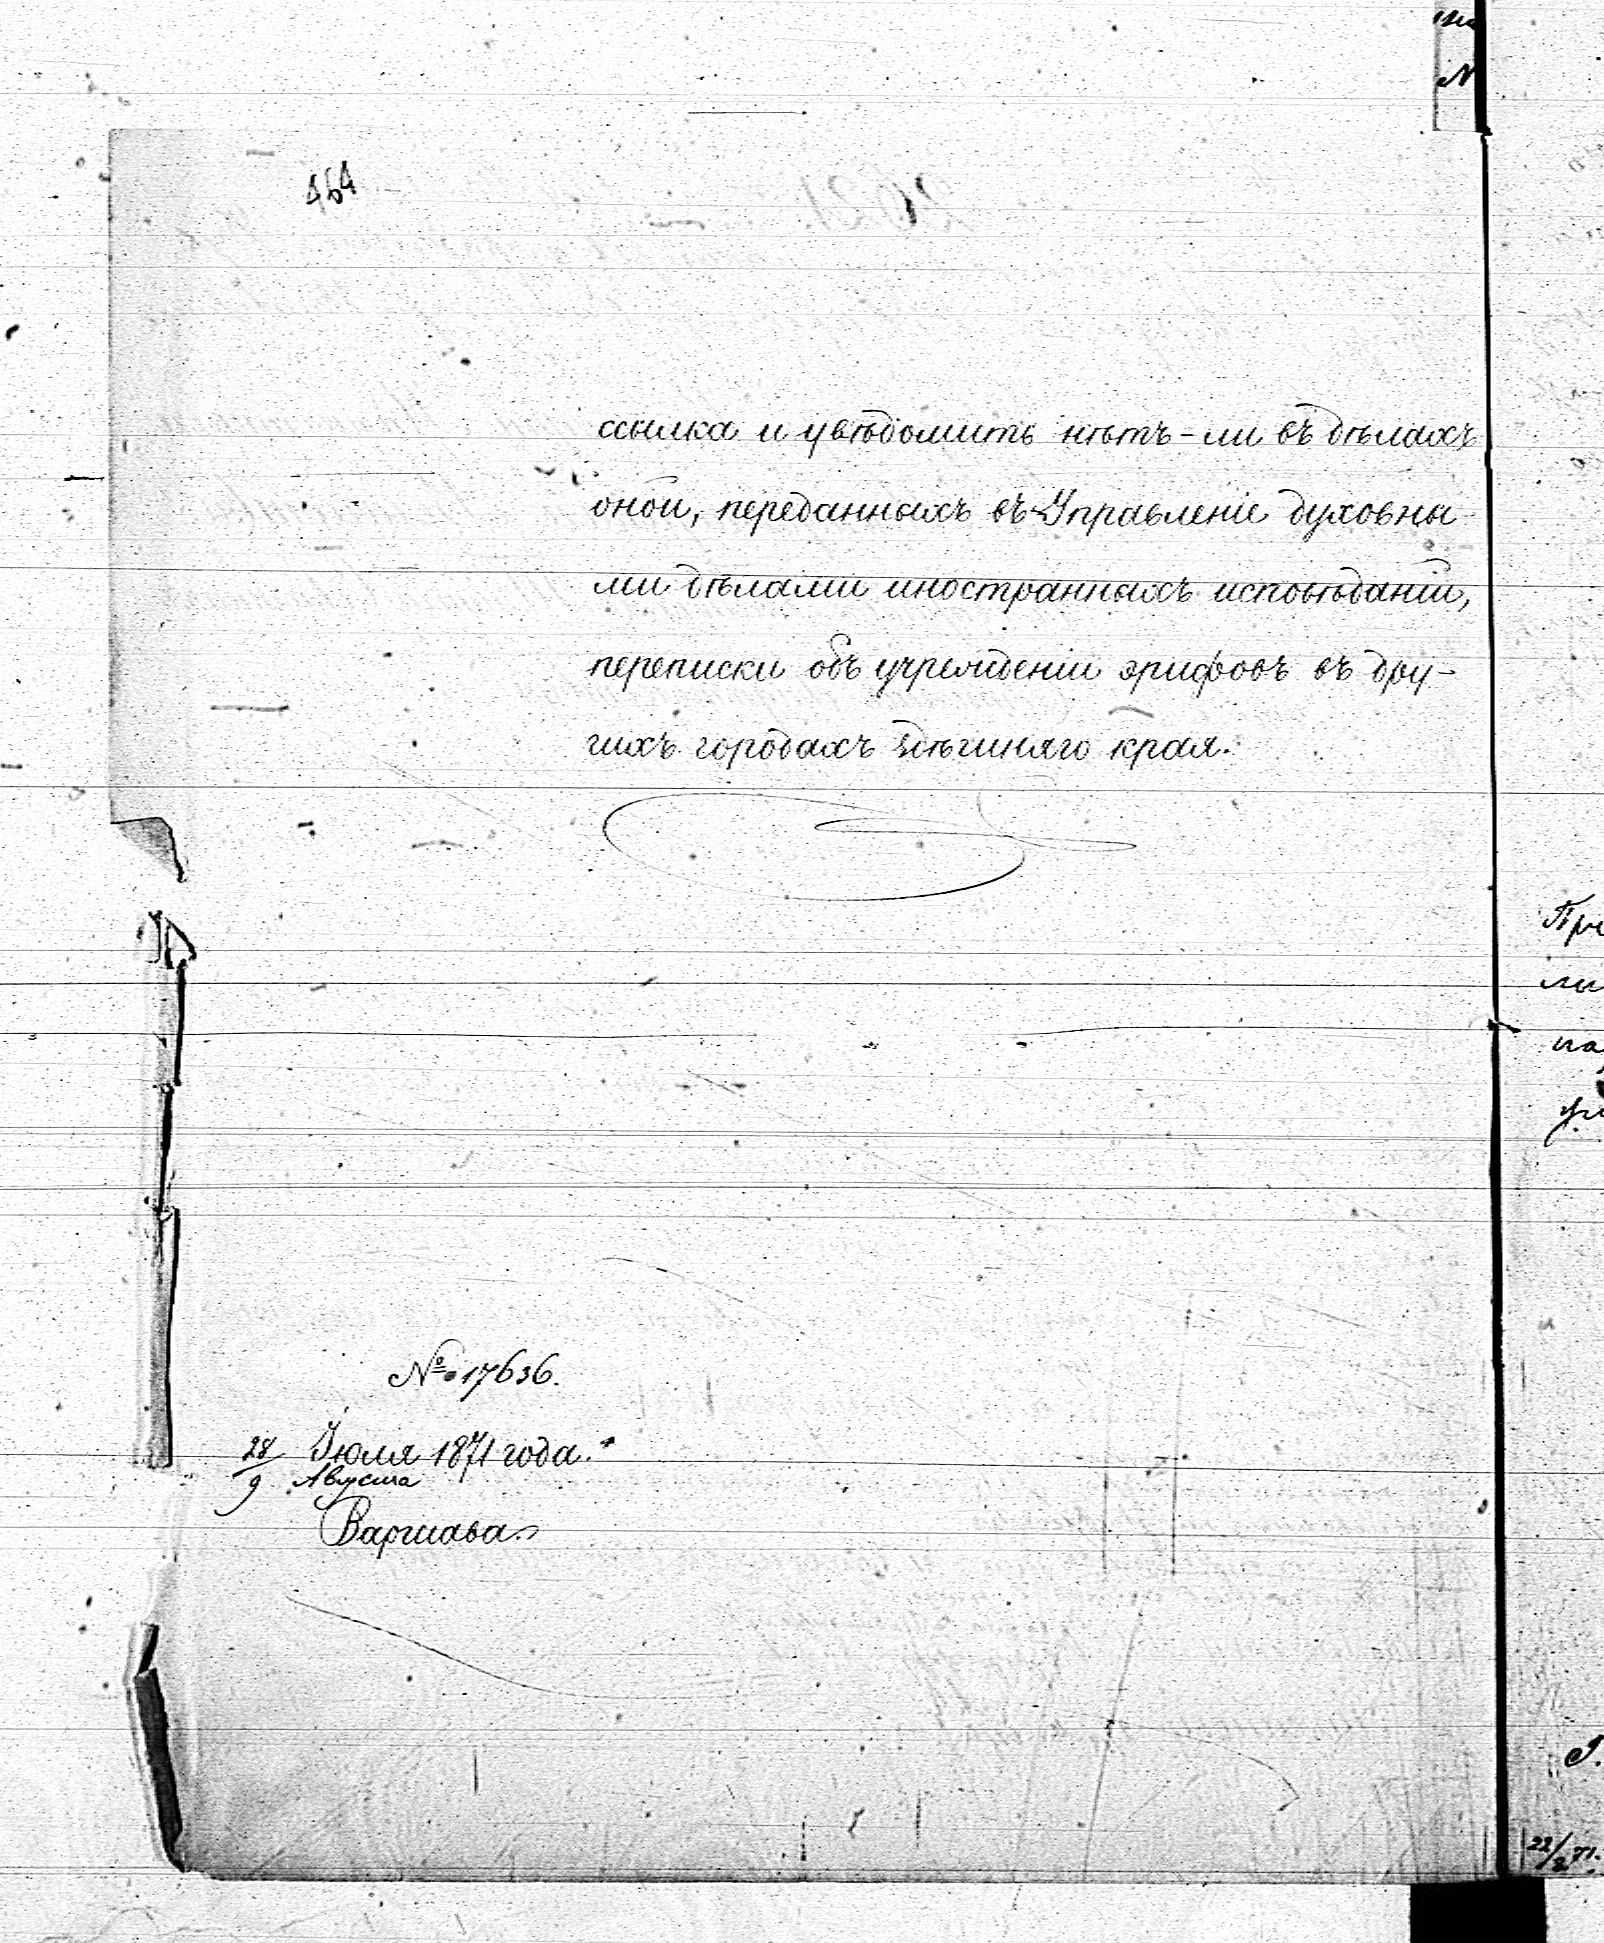 464
ссылка и увѣдомить нѣтъ-ли въ дѣлахъ
оной, переданныхъ въ Управленіе духовны-
ми дѣлами иностранныхъ исповѣданій,
переписки объ учрежденіи эрифовъ въ дру-
гихъ городахъ здѣшняго края.
№ 17636.
28/9 Іюля 1871 года.
Августа
Варшава.
22/8 71.